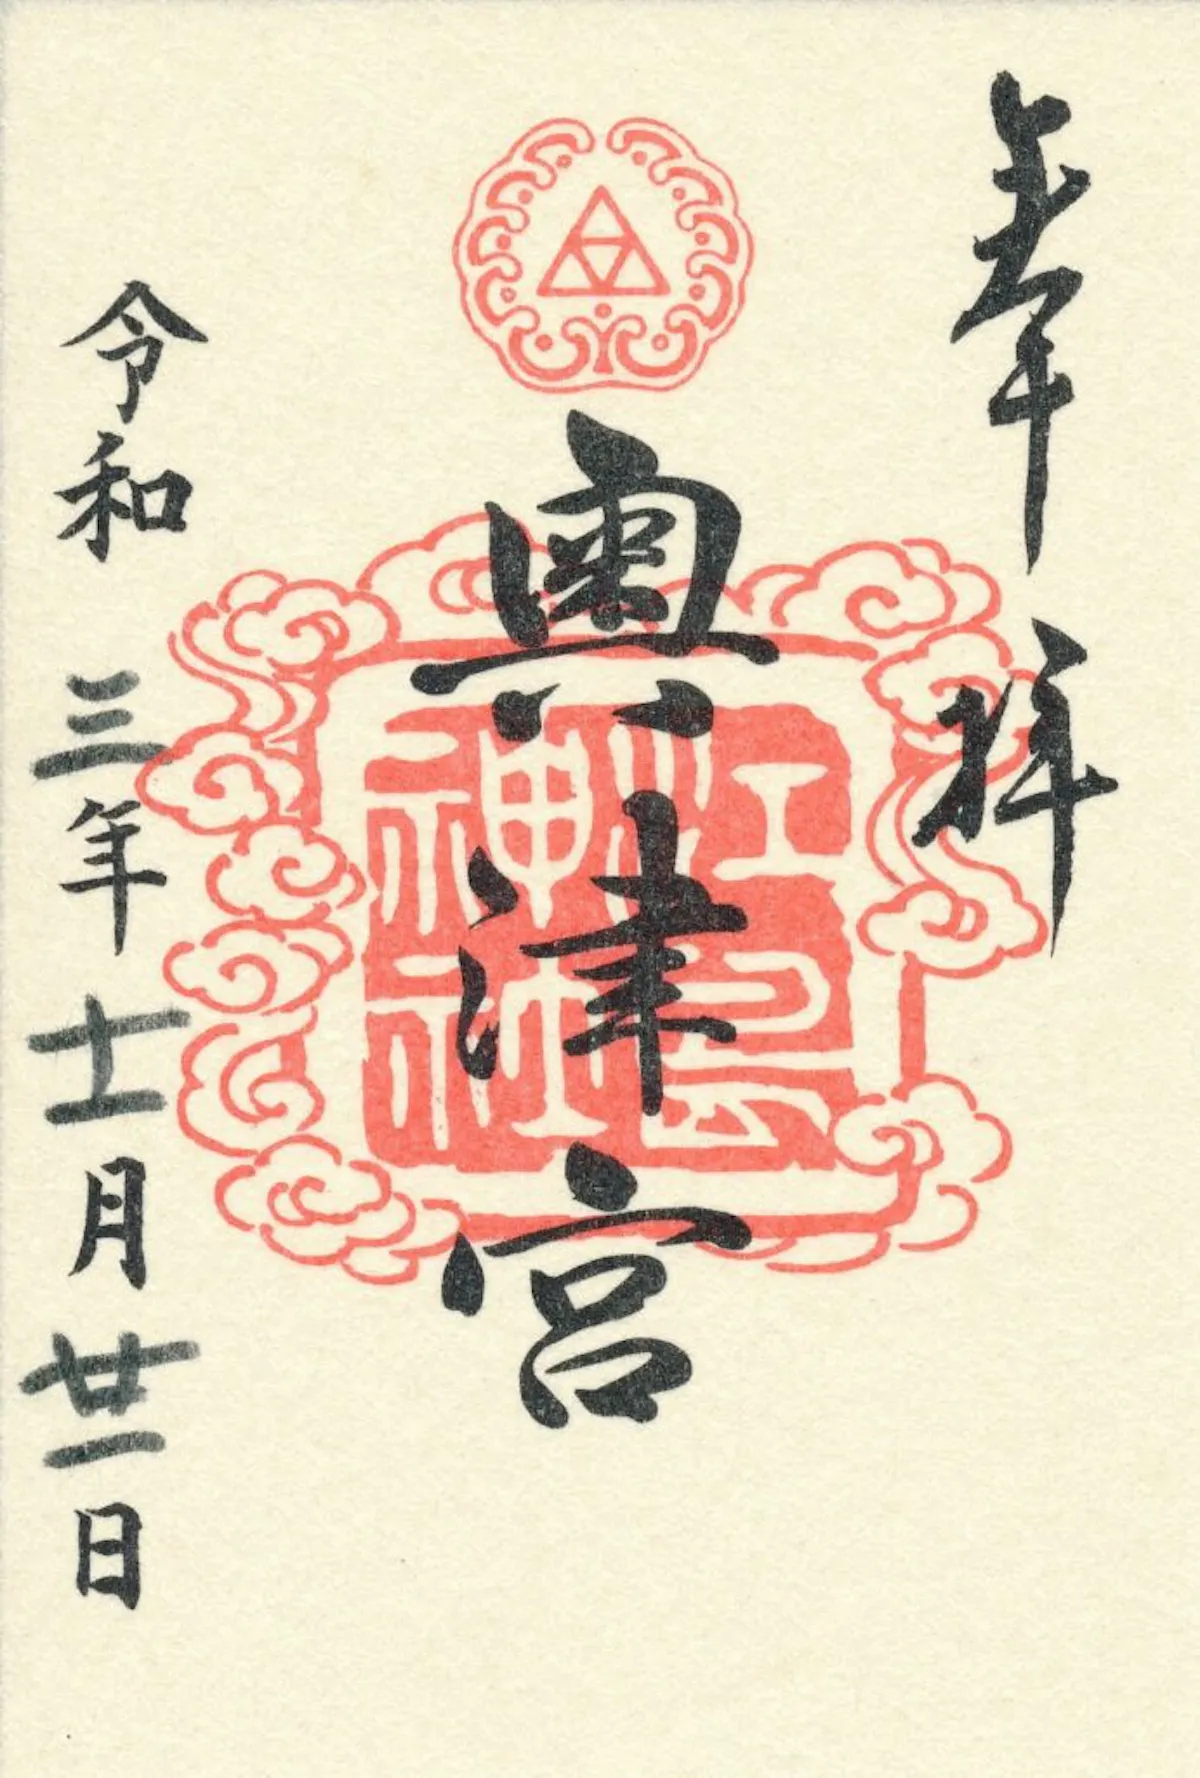 奉拝
奥津宮
江島神社
令和三年十一月廿一日